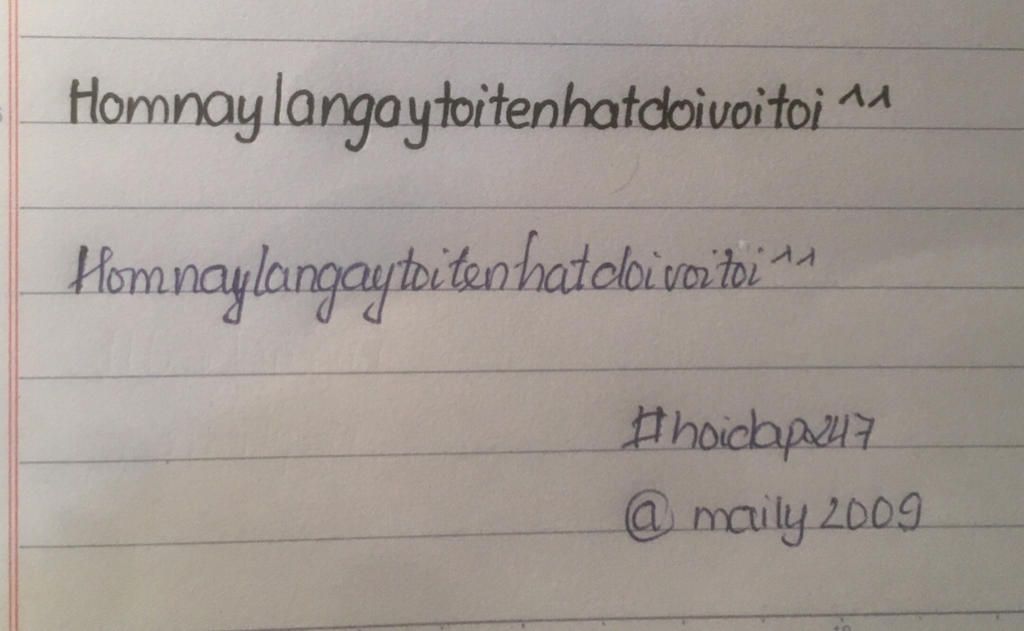 Homnaylangaytoitenhatdoivoitoi ^^
Homnaylangaytoitenhatdoivoitoi ^^
#hoidap247
@ maily 2009